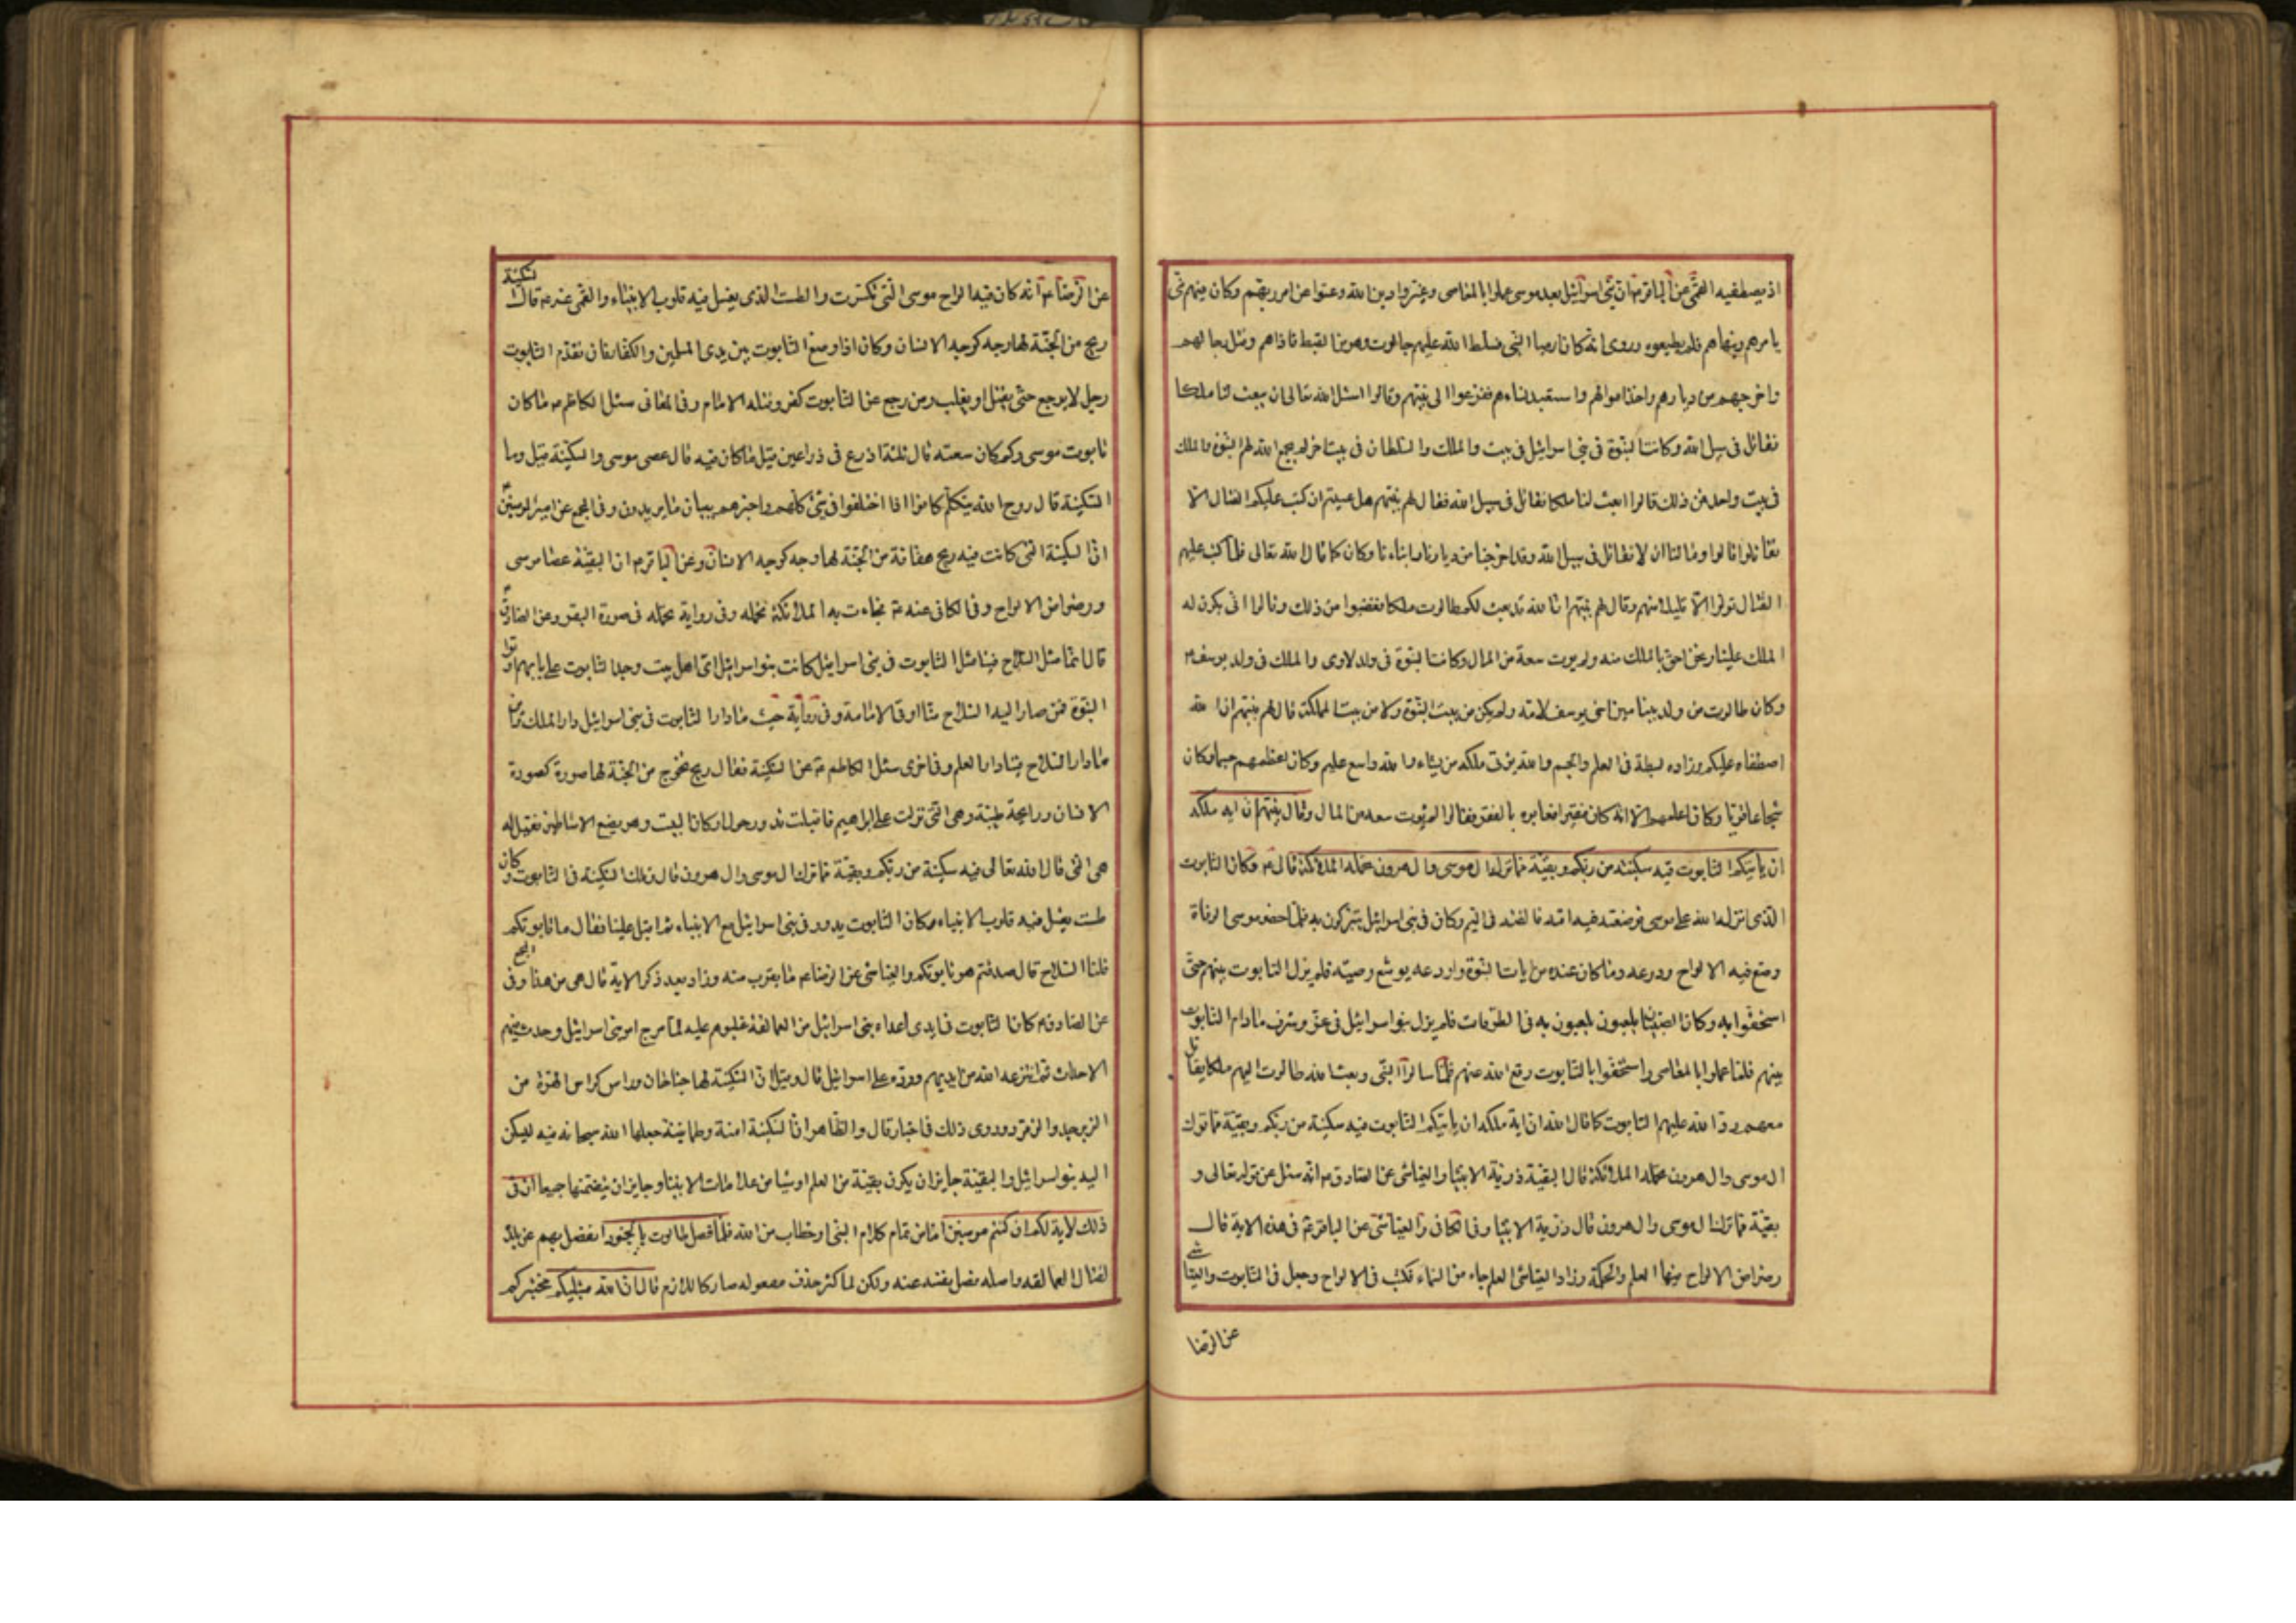 اذ يصطفيه القمّي عن الباقر ان بني اسرائيل بعد موسى عملوا بالمعاصي وغيّروا دين الله وعتوا عن امر ربّهم وكان فيهم نبي
يامرهم وينهاهم فلم يطيعوه وروى انه كان ارميا النبي فسلّط الله عليهم جالوت وهو من القبط فاذاهم وقتل رجالهم
واخرجهم من ديارهم واخذ اموالهم واستعبد نساءهم ففزعوا الى نبيّهم وقالوا اسئل الله تعالى ان يبعث لنا ملكا
نقاتل في سبيل الله وكانت النبوّة في بني اسرائيل في بيت والملك والسلطان في بيت اخر لم يجمع الله لهم النبوّة والملك
في بيت واحد فمن ذلك قالوا ابعث لنا ملكا نقاتل في سبيل الله فقال لهم نبيّهم هل عسيتم ان كتب عليكم القتال الا
تقاتلوا قالوا وما لنا ان لا نقاتل في سبيل الله وقد اخرجنا من ديارنا وابناءنا وكان كما قال الله تعالى فلمّا كتب عليهم
القتال تولّوا الا قليلا منهم وقال لهم نبيّهم ان الله قد بعث لكم طالوت ملكا فغضبوا من ذلك وقالوا انى يكون له
الملك علينا ونحن احق بالملك منه ولم يوت سعة من المال وكانت النبوّة في ولد لاوى والملك في ولد يوسف
وكان طالوت من ولد بنيامين اخي يوسف لامّه ولم يكن من بيت النبوّة ولا من بيت المملكة قال لهم نبيّهم ان الله
اصطفاه عليكم وزاده بسطة في العلم والجسم والله يؤتى ملكه من يشاء والله واسع عليم وكان اعظمهم جسما وكان
شجاعا قويّا وكان اعلمهم الا انه كان فقيرا فعابوه بالفقر فقالوا لم يؤت سعة من المال وقال نبيّهم ان اية ملكه
ان ياتيكم التابوت فيه سكينة من ربكم وبقيّة ممّا ترك ال موسى وال هرون تحمله الملائكة قال وكان التابوت
الذي انزله الله على موسى فوضعته فيه امّه فالقته في اليم وكان في بني اسرائيل يتبرّكون به فلمّا حضر موسى الوفاة
وضع فيه الالواح ودرعه وما كان عنده من ايات النبوّة واودعه يوشع وصيّه فلم يزل التابوت بينهم حتى
استخفّوا به وكان الصبيان يلعبون يلعبون به في الطرقات فلم يزل بنو اسرائيل في عزّ وشرف ما دام التابوت
بينهم فلمّا عملوا بالمعاصي واستخفّوا بالتابوت رفع الله عنهم فلمّا سالوا النبي وبعث الله طالوت اليهم ملكا يقاتل
معهم ردّ الله عليهم التابوت كما قال الله ان اية ملكه ان ياتيكم التابوت فيه سكينة من ربكم وبقيّة مما ترك
ال موسى وال هرون تحمله الملائكة قال البقيّة ذريّة الانبيا والعيّاشي عن الصادق انه سئل عن قوله تعالى و
بقيّة ممّا ترك ال موسى وال هرون قال ذريّة الانبيا وفي الكافي والعيّاشي عن الباقر في هذه الاية قال
رضراض الالواح فيها العلم والحكمة وزاد العيّاشي العلم جاء من السماء فكتب في الالواح وجعل في التابوت والعيّاشي
عن الرضا
عن الرضا انه كان فيه الواح موسى التي تكسّرت والطست الذي يغسل فيه قلوب الانبياء والقمي عنه قال السكينة
ريح من الجنّة لها وجه كوجه الانسان وكان اذا وضع التابوت بين يدى المسلمين والكفّار فان تقدّم التابوت
رجل لا يرجع حتى يقتل او يغلب ومن رجع عن التابوت كفر وقتله الامام وفي المعاني سئل الكاظم ما كان
تابوت موسى وكم كان سعته قال ثلثة اذرع في ذراعين قيل ما كان فيه قال عصى موسى والسكينة قيل وما
السكينة قال روح الله يتكلّم كانوا اذا اختلفوا في شئ كلّمهم واخبرهم ببيان ما يريدون وفي المجمع عن امير المومنين
انّ السكينة التي كانت فيه ريح هفافة من الجنّة لها وجه كوجه الانسان وعن الباقر ان البقيّة عصا موسى
ورضراض الالواح وفي الكافي عنه فجاءت به الملائكة تحمله وفي رواية تحمله في صورة البقر وعن الصادق
قال انّما مثل السلاح فينا مثل التابوت في بني اسرائيل كانت بنو اسرائيل اىّ اهل بيت وجد التابوت على بابهم اوتوا
النبوّة فمن صار اليه السلاح منّا اوتى الامامة وفي رواية حيث ما دار التابوت في بني اسرائيل دار الملك فاين
ما دار السلاح فينا دار العلم وفي اخرى سئل الكاظم عن السكينة فقال ريح تخرج من الجنّة لها صورة كصورة
الانسان ورايحة طيّبة وهي التي نزلت على ابراهيم فاقبلت تدور حول اركان البيت وهو يضع الاساطين فقيل له
هي التي قال الله تعالى فيه سكينة من ربكم وبقيّة ممّا ترك ال موسى وال هرون قال تلك السكينة في التابوت وكان
طست يغسل فيه قلوب الانبياء وكان التابوت يدور في بني اسرائيل مع الانبياء ثم اقبل علينا فقال ما تابوتكم
قلنا السلاح قال صدقتم هو تابوتكم والعيّاشي عن الرضا ما يقرب منه وزاد بعد ذكر الاية قال هي من هذا وفي المجمع
عن الصادق كان التابوت في ايدى اعداء بني اسرائيل من العمالقة غلبوهم عليه لمّا مرج امر بني اسرائيل وحدث فيهم
الاحداث ثم انتزعه الله من ايديهم وردّه على اسرائيل قال وقيل انّ السكينة لها جناحان وراس كراس الهرّة من
الزبرجد والزمرّد وروى ذلك في اخبار قال والظاهر انّ السكينة امنة وطمانينة جعلها الله سبحانه فيه ليسكن
اليه بنو اسرائيل والبقيّة جايز ان يكون بقيّة من العلم او شيا من علامات الانبيا وجايز ان يتضمّنها جميعا ان في
ذلك لاية لكم ان كنتم مومنين امّا من تمام كلام النبي او خطاب من الله فلمّا فصل طالوت بالجنود انفصل بهم عن بلده
لقتال العمالقة واصله فصل نفسه عنه ولكن لما كثر حذف مفعوله صار كاللازم قال ان الله مبتليكم مختبركم